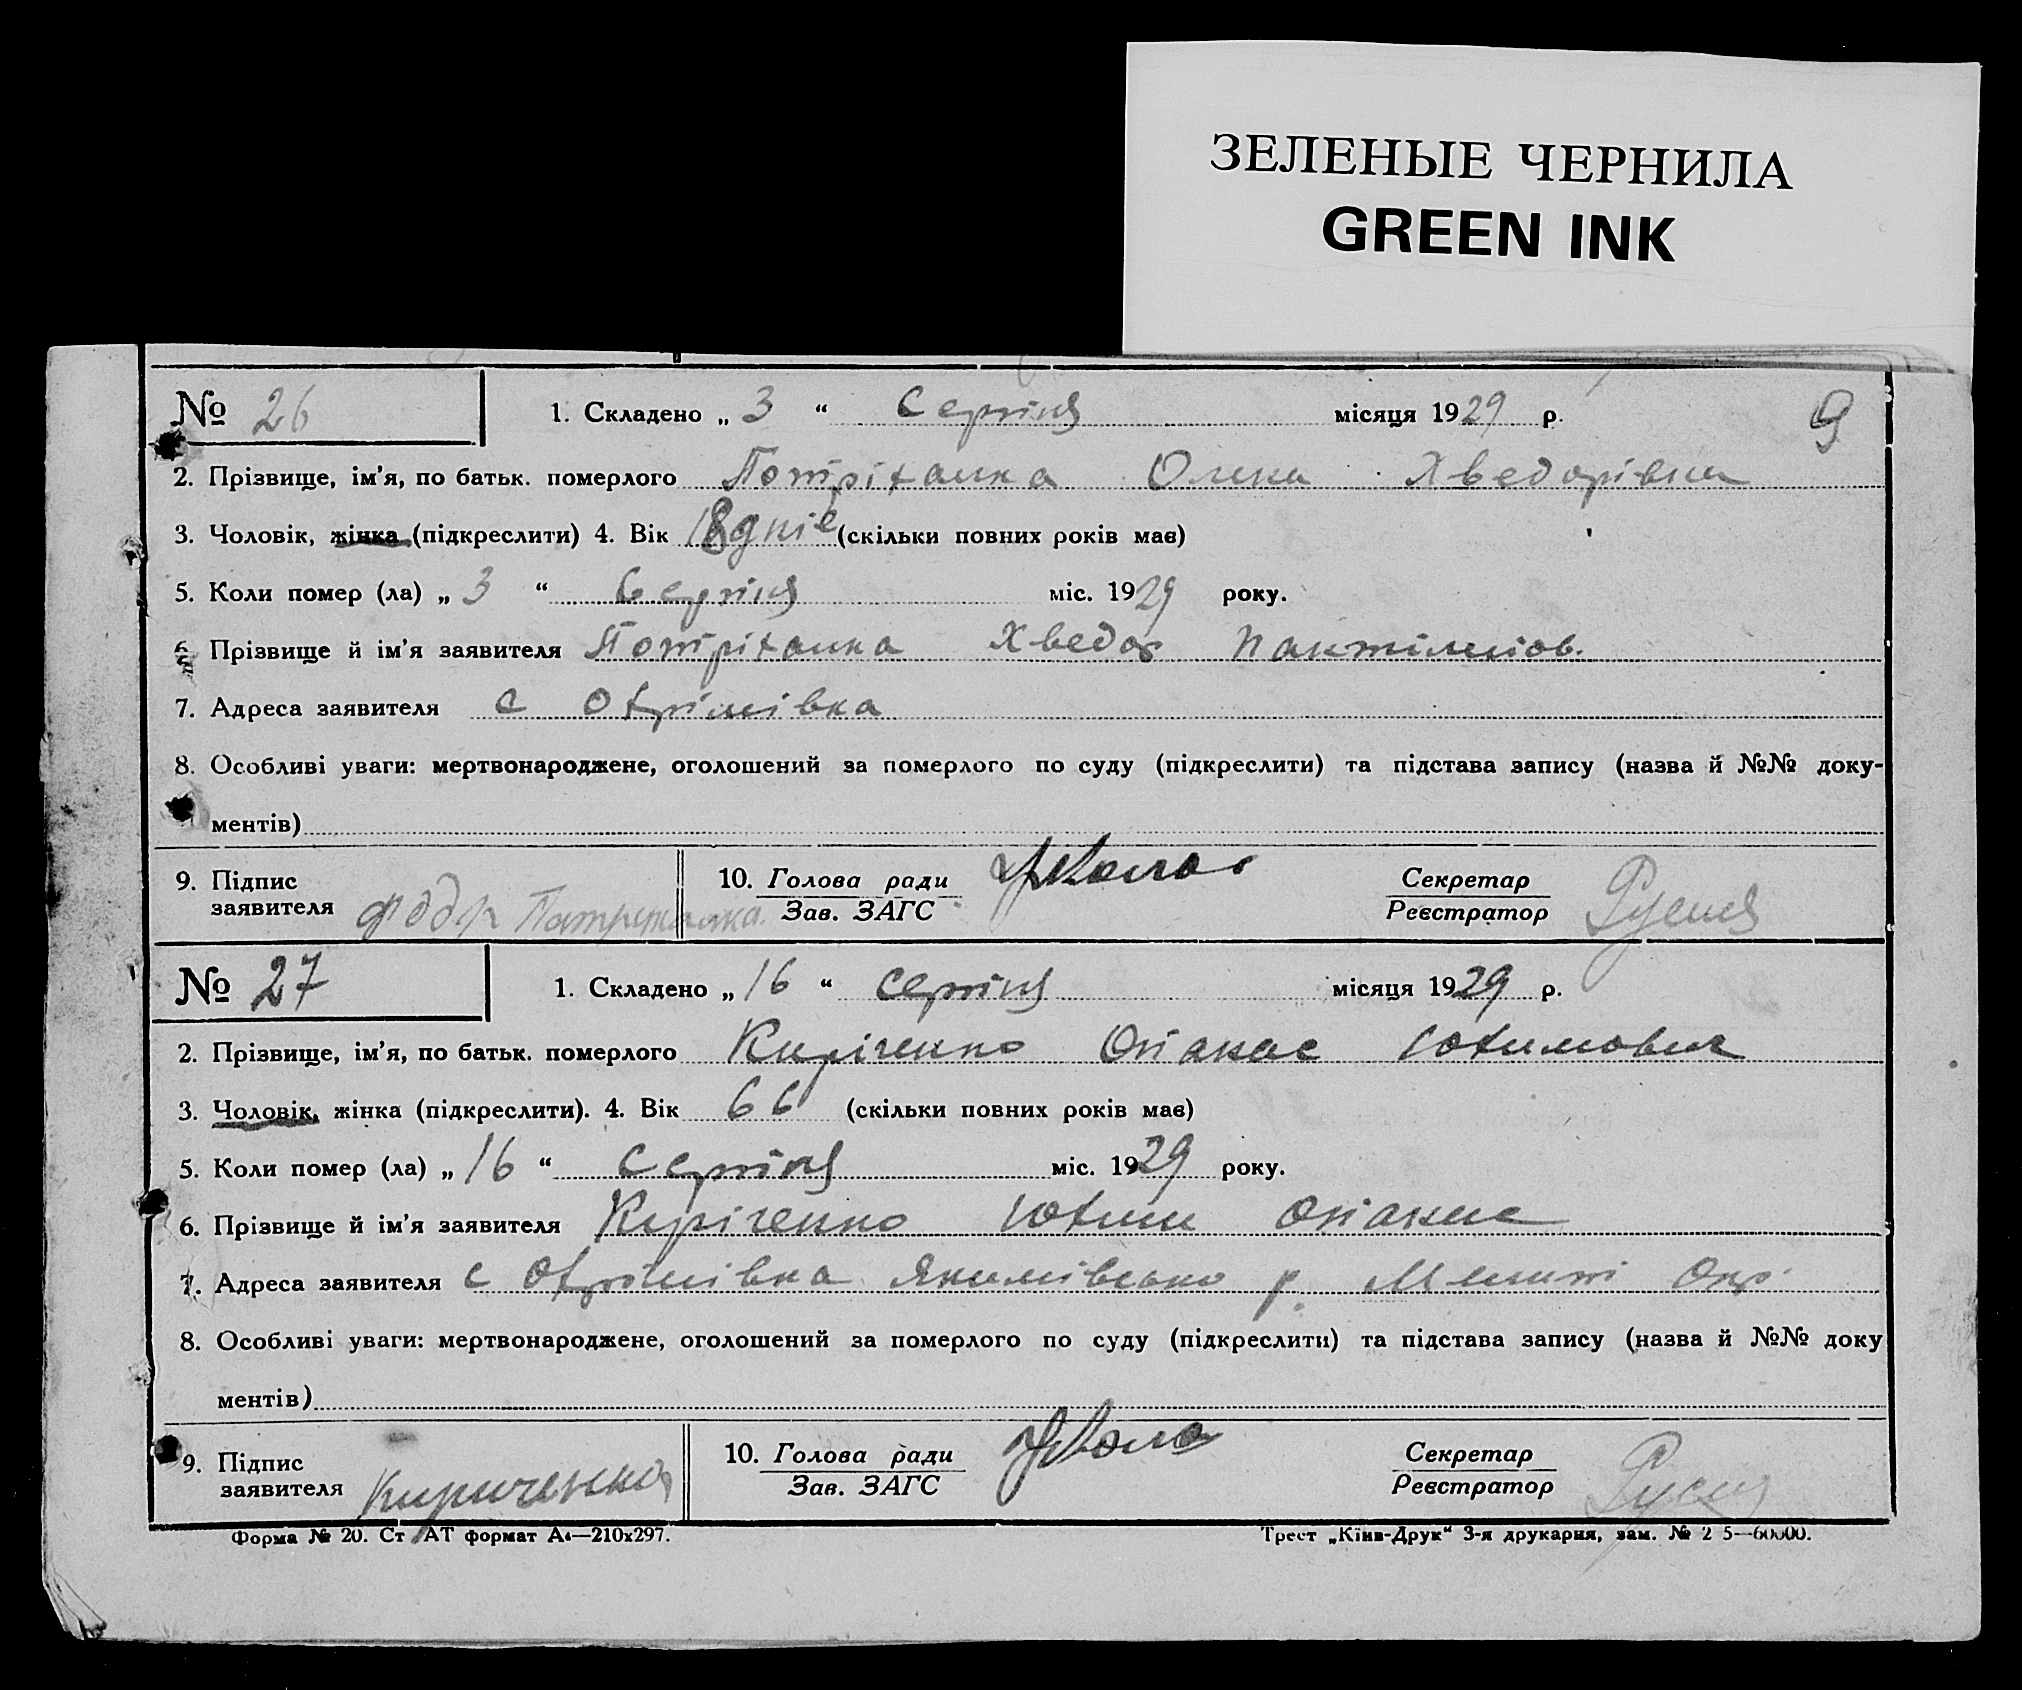 ЗЕЛЕНЫЕ ЧЕРНИЛА
GREEN INK
№ 26 1. Складено „ 3 “ Серпня місяця 1929 р. 9
2. Прізвище, ім’я, по батьк. померлого Потріхалка Олена Хведорівна
3. Чоловік, жінка (підкреслити) 4. Вік 18 днів (скільки повних років має)
5. Коли помер (ла) „ 3 “ Серпня міс. 1929 року.
6. Прізвище й ім’я заявителя Потріхалка Хведор
7. Адреса заявителя с Охрімівка
8. Особливі уваги: мертвонароджене, оголошений за померлого по суду (підкреслити) та підстава запису (назва й №№ доку-
ментів)
9. Підпис
заявителя
10. Голова ради
Зав. ЗАГС
Секретар
Реєстратор
№ 27 1. Складено „ 16 “ серпня місяця 1929 р.
2. Прізвище, ім’я, по батьк. померлого Киріченко Опанас Юхимович
3. Чоловік, жінка (підкреслити). 4. Вік 66 (скільки повних років має)
5. Коли помер (ла) „ 16 “ серпня міс. 1929 року.
6. Прізвище й ім’я заявителя Киріченко Юхим Опанас
7. Адреса заявителя с Охрімівка Якимівсько р. Меліт Окр.
8. Особливі уваги: мертвонароджене, оголошений за померлого по суду (підкреслити) та підстава запису (назва й №№ доку
ментів)
9. Підпис
заявителя Кириченко
10. Голова ради
Зав. ЗАГС
Секретар
Реєстратор
Форма № 20. Ст АТ формат А4—210х297. Трест „Київ-Друк“ 3-я друкарня, зам. № 2 5—60000.